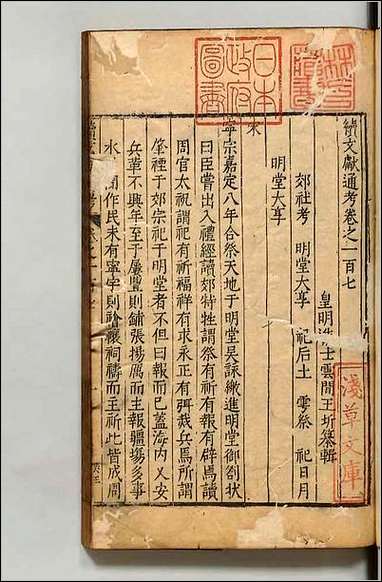 續文獻通考卷之一百七
皇明進士雲間王圻纂輯
郊社考　明堂大享　祀后土　雩祭　祀日月
明堂大享
宋
寧宗嘉定八年合祭天地于明堂吳詠繳進明堂御劄狀
曰臣嘗出入禮經讀郊特牲謂祭有祈有報有辟焉讀
周官太祝謂祀有祈福祥有求永正有弭烖兵焉所謂
肇禋于郊宗祀于明堂者不但曰報而已蓋海內乂安
兵革不興年至于屢豐則鋪張揚厲而主報疆埸多事
水　間作民未有寧宇則禬禳祠禱而主祈此皆成周
日本政府圖書
淺草文庫